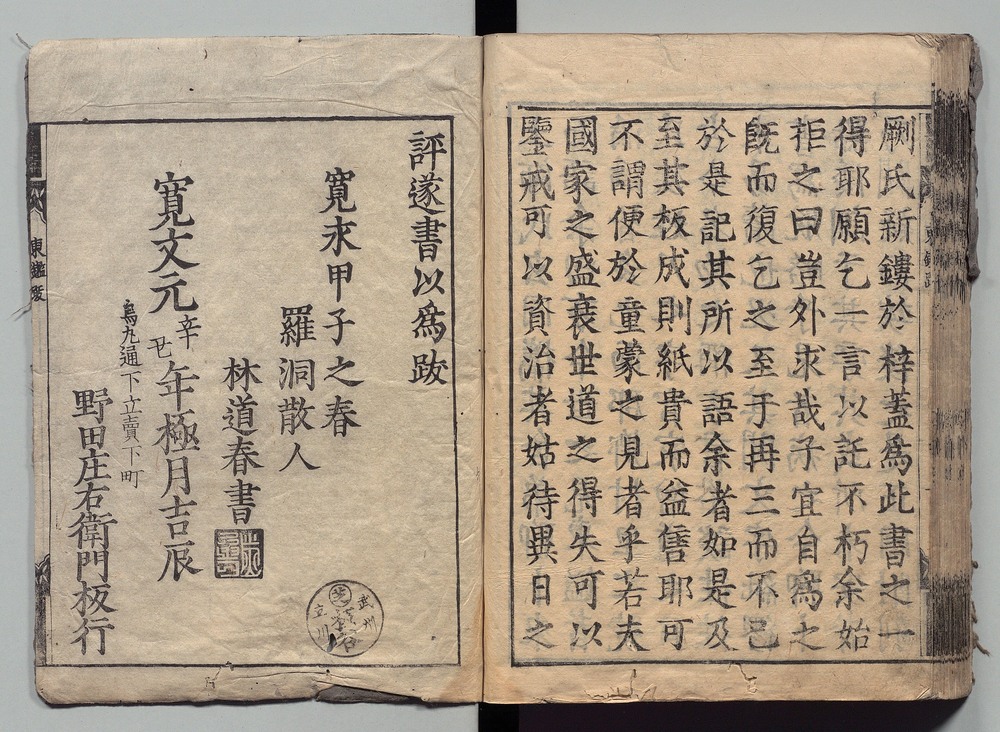 劂氏新鏤於梓蓋爲此書之一
得耶願乞一言以託不朽余始
拒之曰豈外求哉子宜自爲之
既而復乞之至于再三而不已
於是記其所以語余者如是及
至其板成則紙貴而益售耶可
不謂便於童蒙之見者乎若夫
國家之盛衰世道之得失可以
鑒戒可以資治者姑待異日之
評遂書以爲跋
寛永甲子之春
羅洞散人
林道春書
寛文元辛丑年極月吉辰
烏丸通下立賣下町
野田庄右衛門板行
東鑑跋
武州
立川